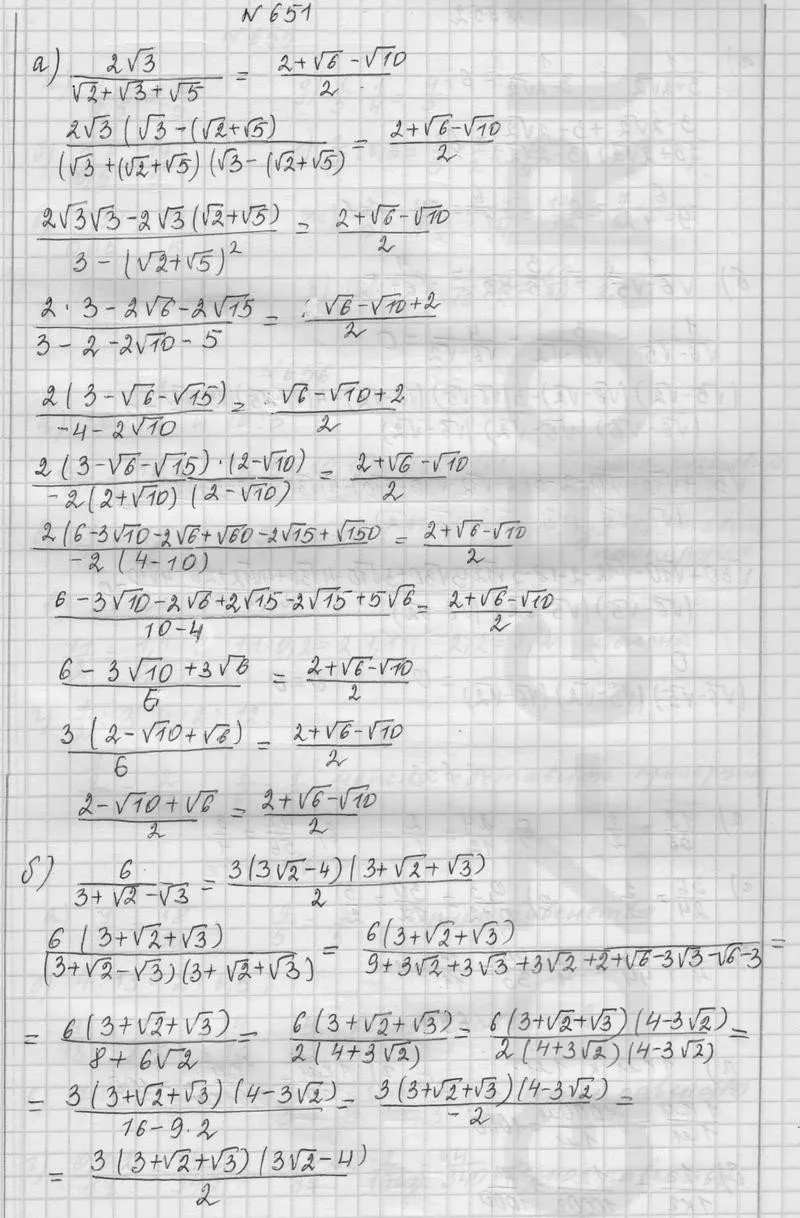 N 651
а) 2√3/(√2+√3+√5) = (2+√6-√10)/2
2√3(√3-(√2+√5)/(√3+(√2+√5)(√3-(√2+√5) = (2+√6-√10)/2
(2√3√3-2√3(√2+√5))/(3-(√2+√5)²) = (2+√6-√10)/2
(2·3-2√6-2√15)/(3-2-2√10-5) = (√6-√10+2)/2
2(3-√6-√15)/(-4-2√10) = (√6-√10+2)/2
2(3-√6-√15)·(2-√10)/(-2(2+√10)(2-√10)) = (2+√6-√10)/2
2(6-3√10-2√6+√60-2√15+√150/(-2(4-10)) = (2+√6-√10)/2
(6-3√10-2√6+2√15-2√15+5√6)/(10-4) = (2+√6-√10)/2
(6-3√10+3√6)/6 = (2+√6-√10)/2
3(2-√10+√6)/6 = (2+√6-√10)/2
(2-√10+√6)/2 = (2+√6-√10)/2
б) 6/(3+√2-√3) = 3(3√2-4)(3+√2+√3)/2
6(3+√2+√3)/((3+√2-√3)(3+√2+√3)) = 6(3+√2+√3)/(9+3√2+3√3+3√2+2+√6-3√3-√6-3) =
= 6(3+√2+√3)/(8+6√2) = 6(3+√2+√3)/(2(4+3√2)) = 6(3+√2+√3)(4-3√2)/(2(4+3√2)(4-3√2)) =
= 3(3+√2+√3)(4-3√2)/(16-9·2) = 3(3+√2+√3)(4-3√2)/(-2) =
= 3(3+√2+√3)(3√2-4)/2